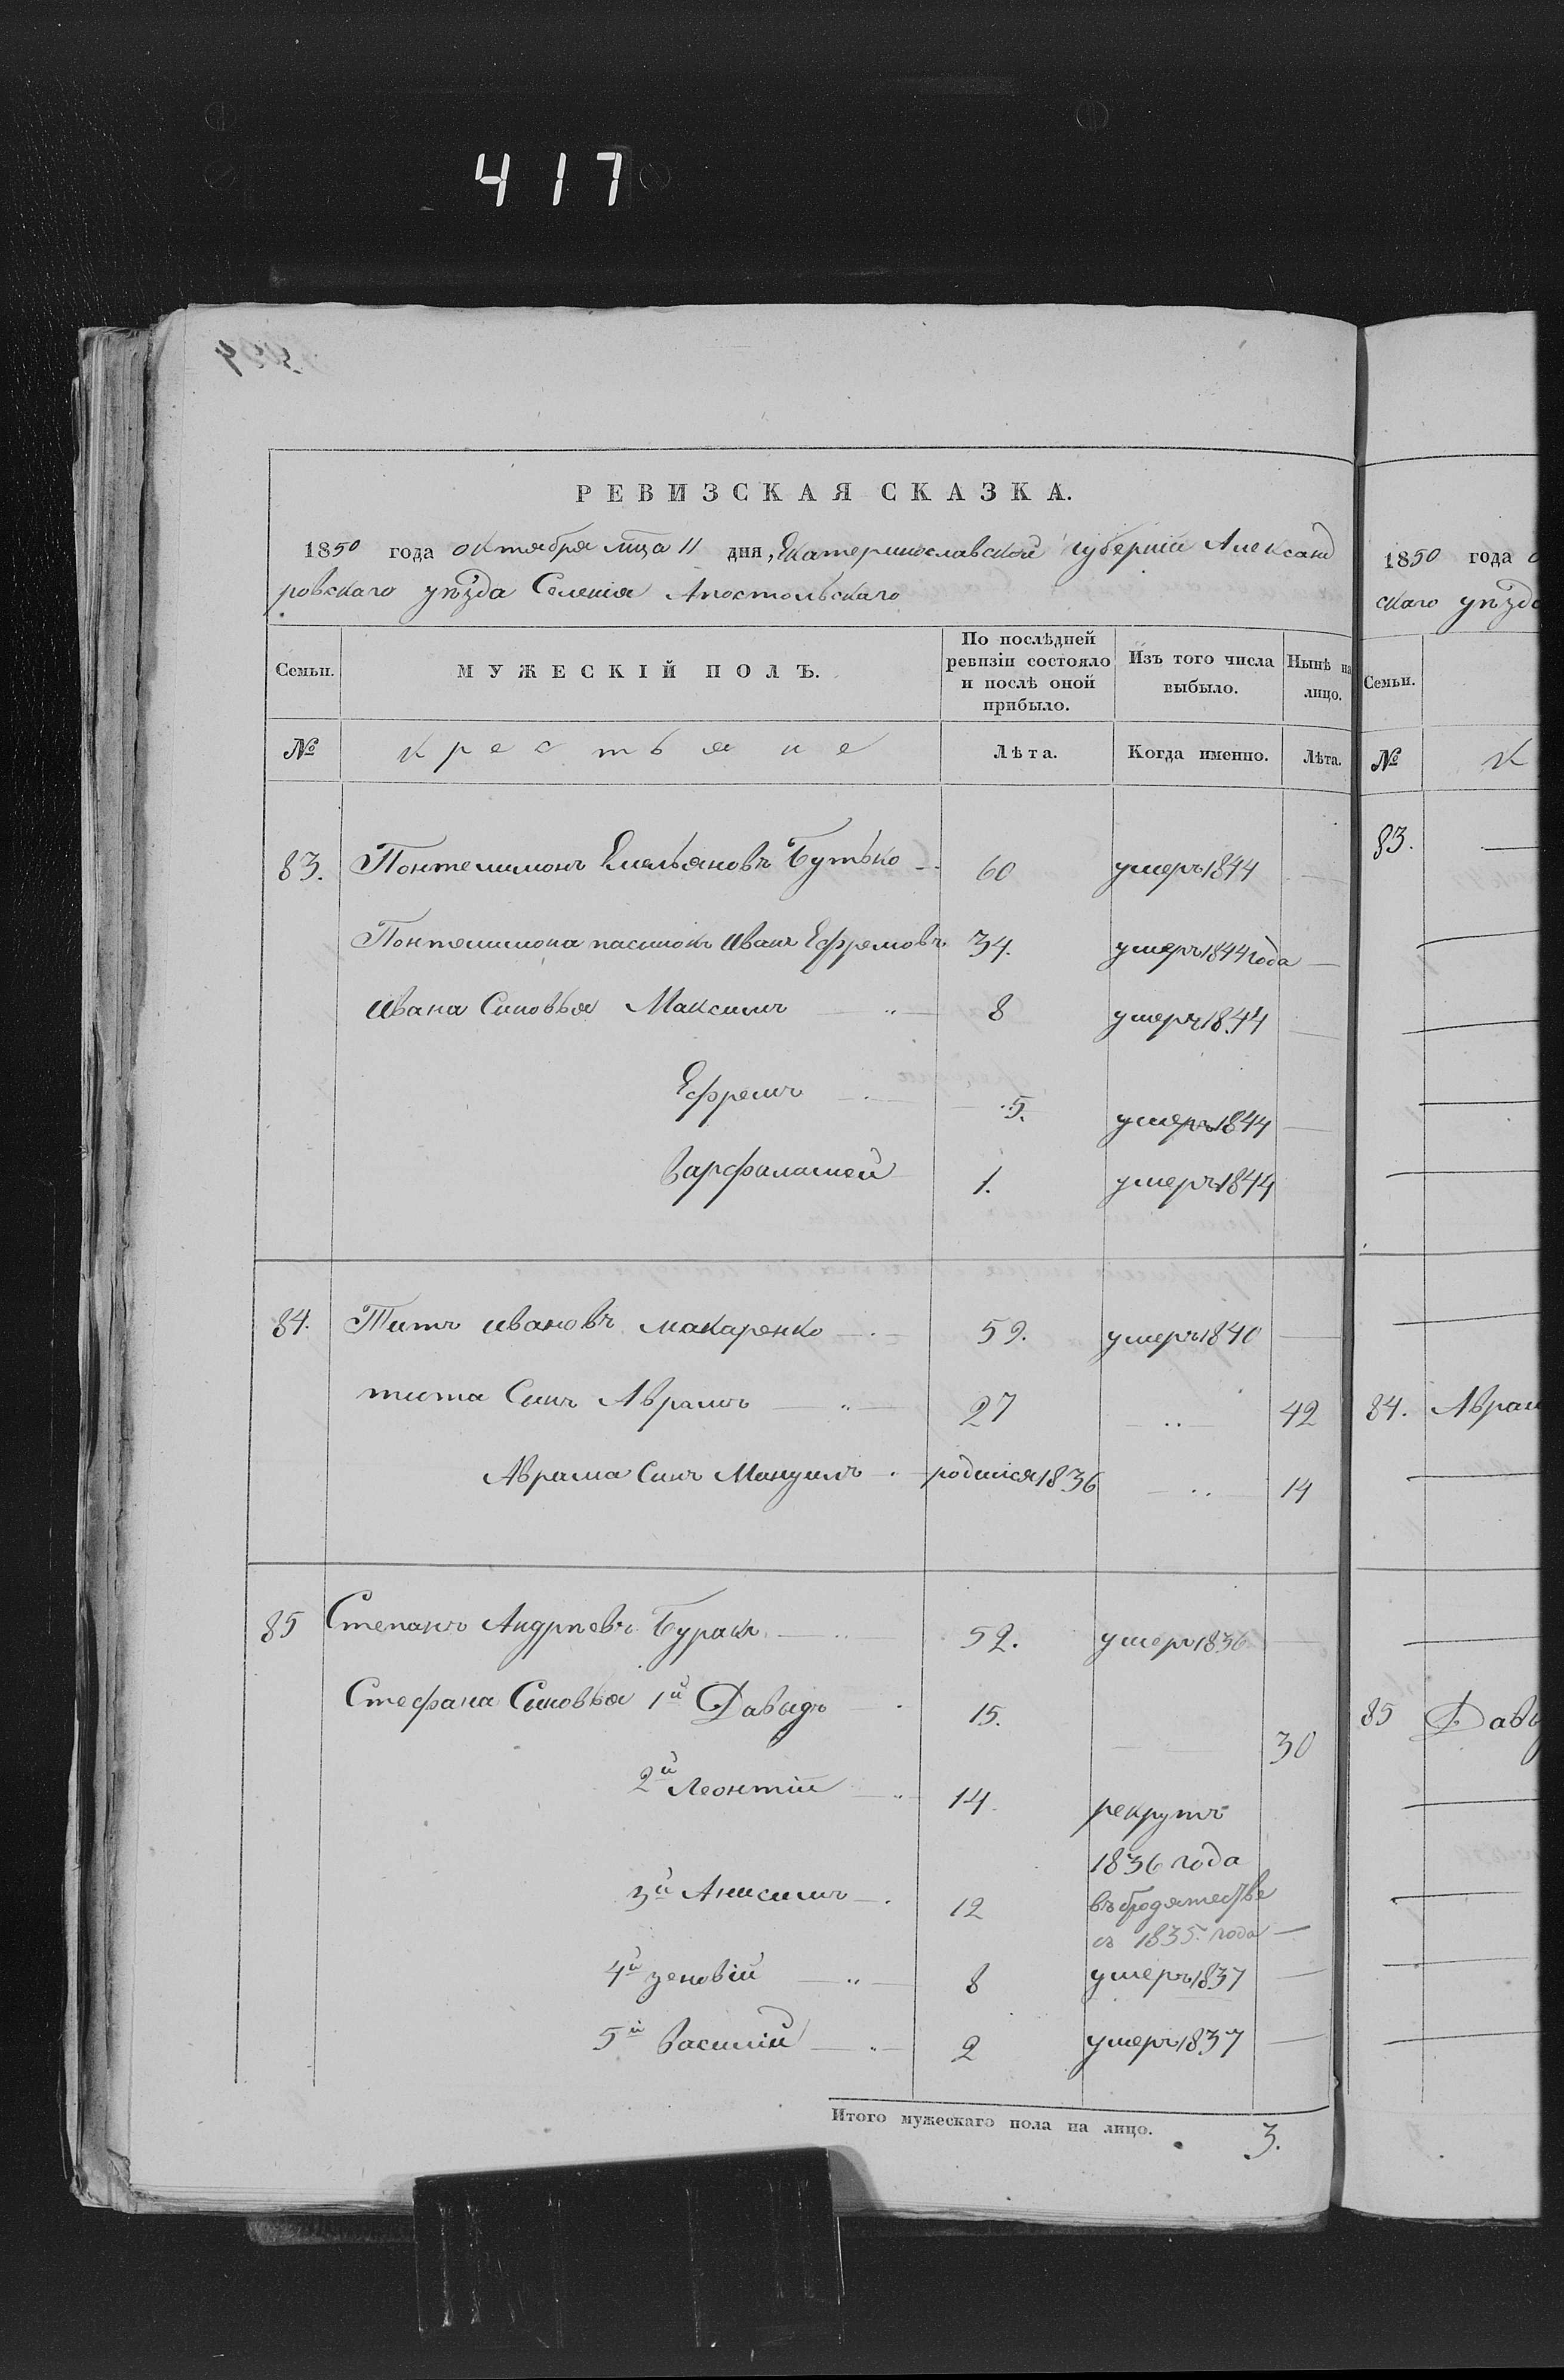 417
РЕВИЗСКАЯ СКАЗКА.
1850 года октября мца 11 дня, Екатеринославской губерніи Александ
ровскаго уѣзда Селенія Апостольскаго
Семьи. МУЖЕСКІЙ ПОЛЪ. По послѣдней ревизіи состояло и послѣ оной прибыло. Изъ того числа выбыло. Нынѣ на лицо.
№ крестьяне Лѣта. Когда именно. Лѣта.
83. Понтелимонъ Емельяновъ Бутько 60 умеръ 1844 —
Понтелимона пасинокъ Иванъ Ефремовъ 34. умеръ 1844 года —
Ивана Синовья Максимъ 8 умеръ 1844 —
Ефремъ 5. умеръ 1844 —
Варфаламей 1. умеръ 1844
84. Титъ Ивановъ Макаренко 59. умеръ 1840 —
тита Синъ Аврамъ 27 — 42
Аврама Синъ Мануилъ родился 1836 — 14
85 Степанъ Андрѣевъ Буракъ 52. умеръ 1836 —
Стефана Синовья 1й Давыдъ 15. — 30
2й Леонтій 14. рекрутъ
1836 года
3й Анисимъ 12 въ бродятестве
съ 1835. года —
4й Зеновій 8 умеръ 1837 —
5й Василій 2 умеръ 1837 —
Итого мужескаго пола на лицо. 3.
1850 года
скаго уѣзд
Семьи.
№ К
83. —
84. Аврам
85 Давы